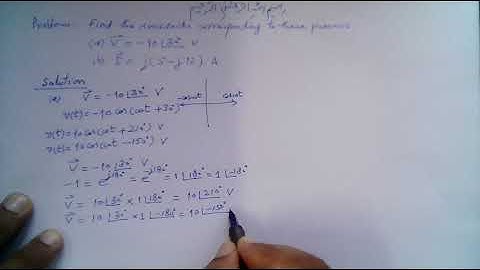 Problem: Find the sinusoids corresponding to these phasors
(a) V⃗ = -10∠30° V
(b) I⃗ = j(5-j12) A
Solution
(a) V⃗ = -10∠30° V
v(t) = -10 cos(ωt + 30°)
-cosωt cosωt
v(t) = 10 cos(ωt + 210°) V
v(t) = 10 cos(ωt - 150°) V
V⃗ = -10∠30° V
-1 = e^{j180°} = e^{-j180°} = 1∠180° = 1∠-180°
V⃗ = 10∠30° × 1∠180° = 10∠210° V
V⃗ = 10∠30° × 1∠-180° = 10∠-150°